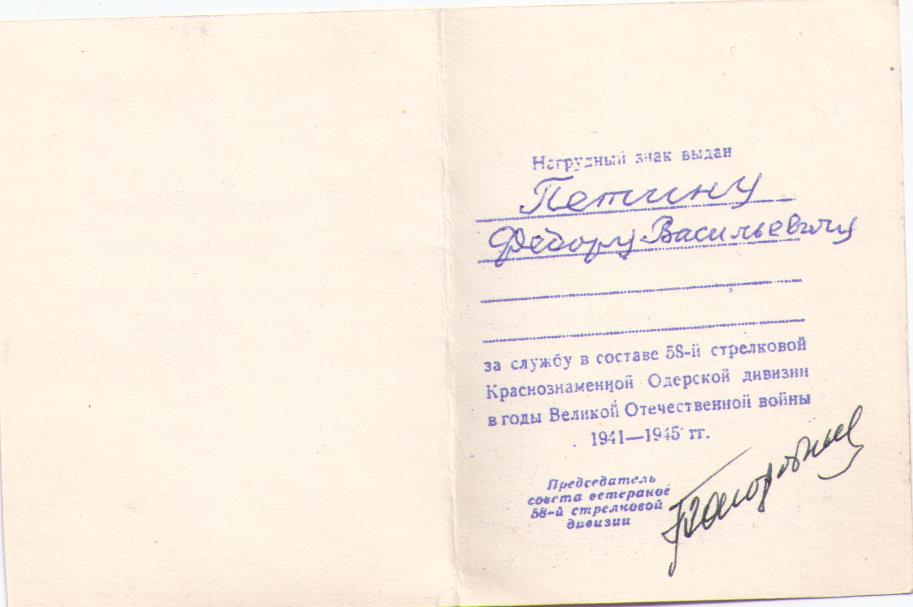 Нагрудный знак выдан
Петину
Федору Васильевичу
за службу в составе 58-й стрелковой
Краснознаменной Одерской дивизии
в годы Великой Отечественной войны
1941—1945 гг.
Председатель
совета ветеранов
58-й стрелковой
дивизии